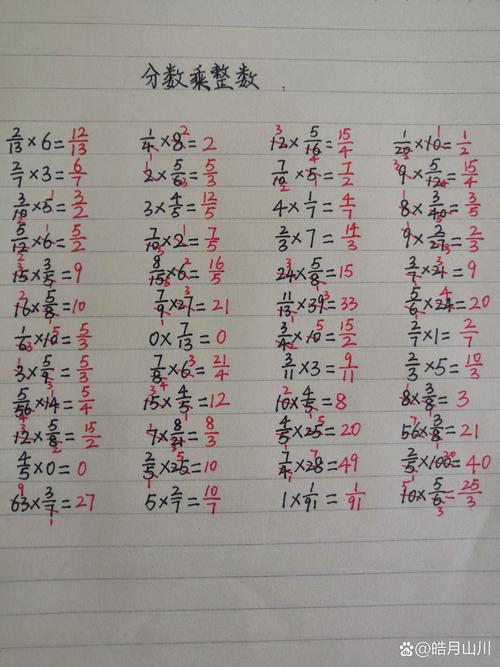 分数乘整数
2/13×6=12/13 1/4×8=2 12×5/16=15/4 1/20×10=1/2
2/7×3=6/7 2×5/6=5/3 7/10×5=7/2 9×5/12=15/4
3/10×5=3/2 3×4/5=12/5 4×1/7=4/7 8×3/40=3/5
5/12×6=5/2 7/10×2=7/5 2/3×7=14/3 9×2/27=2/3
15×3/5=9 8/15×6=16/5 24×5/8=15 3/7×21=9
16×5/8=10 7/9×27=21 11/13×39=33 5/6×24=20
1/6×10=5/3 0×7/13=0 3/4×10=15/2 2/7×1=2/7
7/8×6=21/4 3/11×3=9/11 2/3×5=10/3
5/56×14=5/4 15×4/5=12 10×4/5=8 8×3/8=3
12×5/8=15/2 7×8/21=8/3 4/5×25=20 56×3/8=21
4/5×0=0 2/5×25=10 7/4×28=49 2/5×100=40
63×3/7=27 5×2/7=10/7 1×1/91=1/91 10×5/6=25/3
百家号/皓月山川